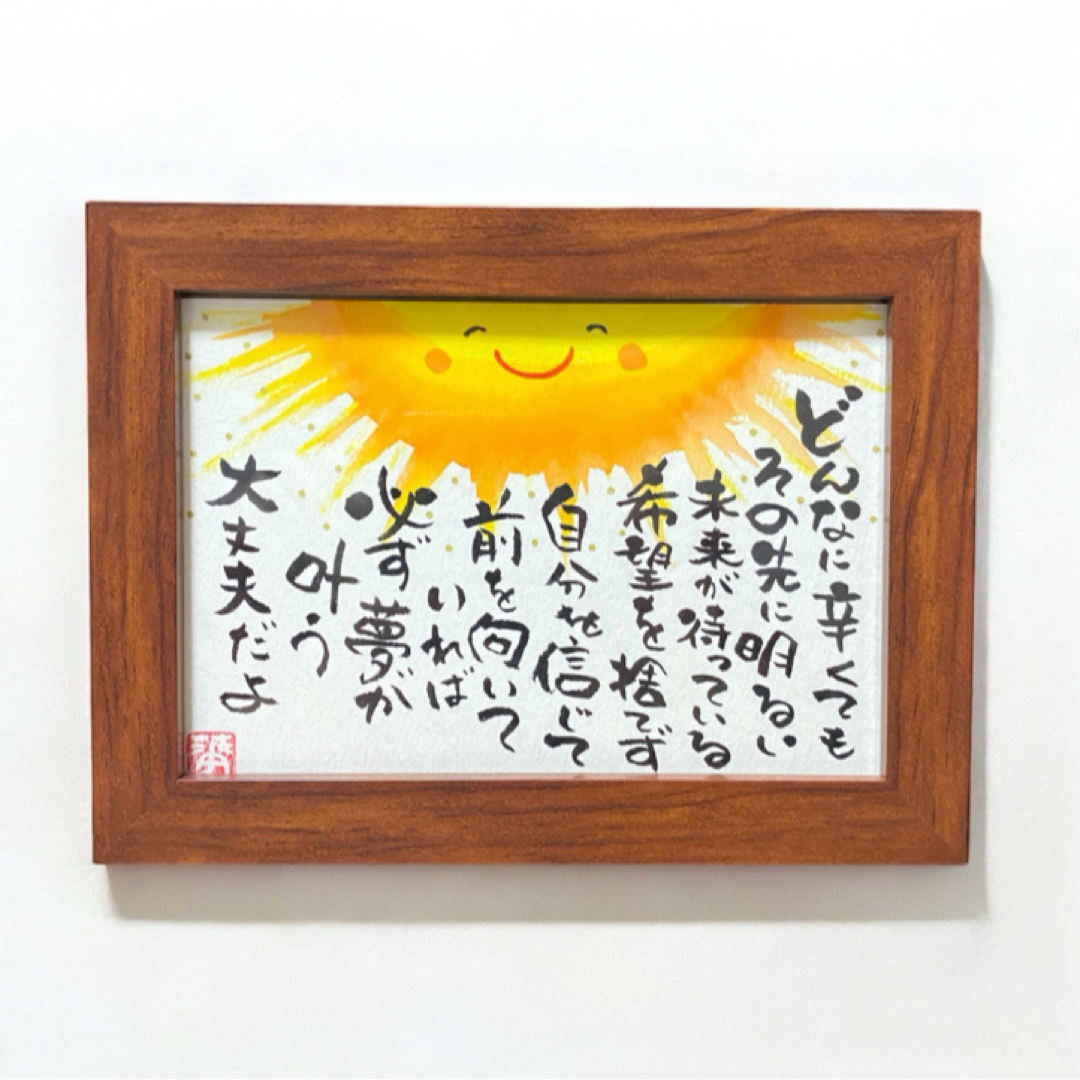 どんなに辛くても
その先に明るい
未来が待っている
希望を捨てず
自分を信じて
前を向いて
いれば
必ず夢が
叶う
大丈夫だよ